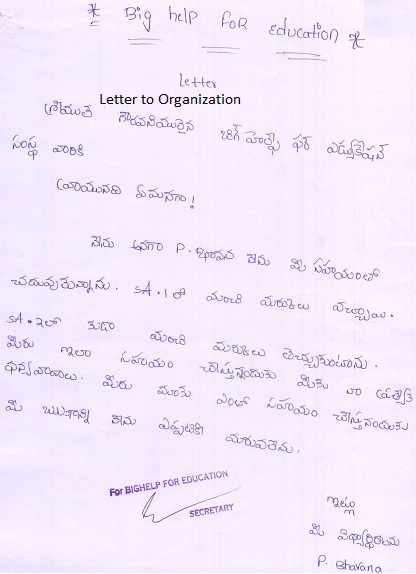 * Big help FOR education *
Letter
Letter to Organization
శ్రీయుత గౌరవనీయురైన బిగ్ హెల్ప్ ఫర్ ఎడ్యుకేషన్
సంస్థ వారికి
వ్రాయునది ఏమనగా!
నేను అనగా P. భావన నేను మీ సహాయంతో
చదువుకున్నాను. SA.1 లో మంచి మార్కులు వచ్చాయి.
SA.2లో కుడా మంచి మార్కులు తెచ్చుకుంటాను.
మీరు ఇలా సహాయం చేస్తున్నందుకు మీకు నా ప్రత్యేక
ధన్యవాదాలు. మీరు మాకు ఎంతో సహాయం చేస్తునందుకు
మీ ఋణాన్ని నేను ఎప్పటికి మరువలేను.
For BIGHELP FOR EDUCATION
SECRETARY
ఇట్లు
మీ విధ్యార్థిరాలు
P. Bhavana